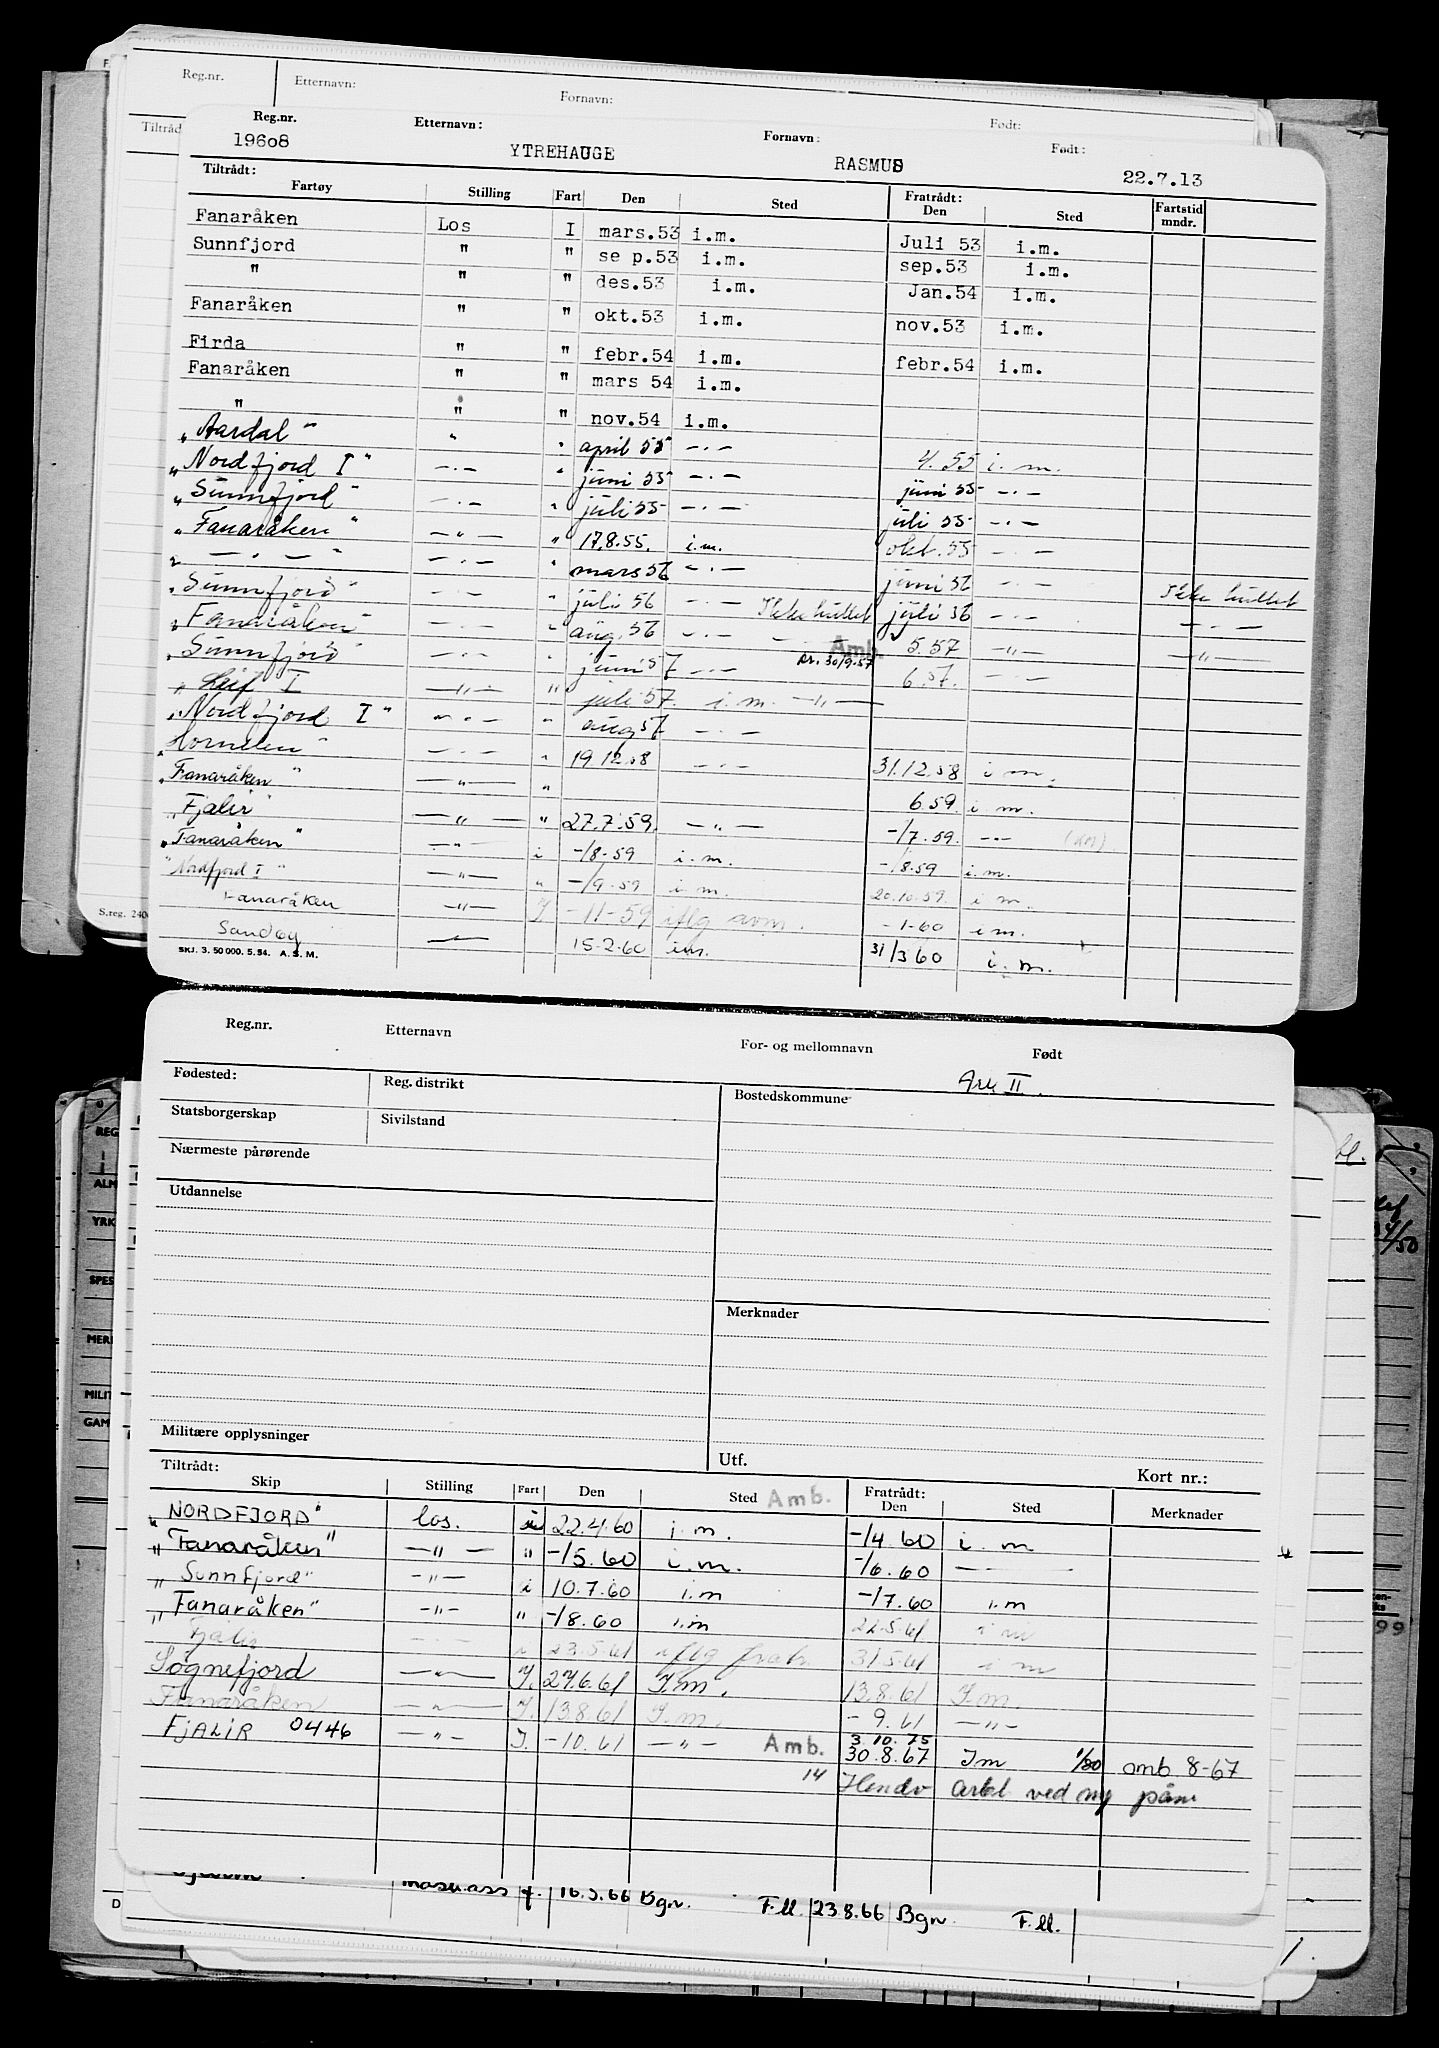 Reg.nr. Etternavn: Fornavn: Født:
Tiltråd
Reg.nr. Etternavn: Fornavn: Født:
19608 YTREHAUGE RASMUS 22.7.13
Tiltrådt: Fratrådt:
Fartøy Stilling Fart Den Sted Den Sted Fartstid mndr.
Fanaråken Los I mars.53 i.m. Juli 53 i.m.
Sunnfjord " " se p.53 i.m. sep.53 i.m.
" " " des.53 i.m. Jan.54 i.m.
Fanaråken " " okt.53 i.m. nov.53 i.m.
Firda " " febr.54 i.m. febr.54 i.m.
Fanaråken " " mars 54 i.m.
" " " nov.54 i.m.
„Aardal" " " april 55 -.- 4.55 i.m.
„Nordfjord I" -.- " juni 55 -.- juni 55 -.-
„Sunnfjord" -.- " juli 55 -.- juli 55 -.-
„Fanaråken" -"- " 17.8.55. i.m. okt.55 -.-
„ -.- " -.- " mars 56 -.- juni 56 -.- Ikke hullet
„Sunnfjord" -.- " juli 56 -.- Ikke hullet juli 56 -.- -.-
„Fanaråken" -.- " aug.56 -.- -.- 5.57 -"- -"-
Amb.
„Sunnfjord" -.- " juni 57 -.- 30/9.57 6.57. -.-
„Leif I -"- " juli 57. i.m. -"-
„Nordfjord I" -.- " aug 57 -.-
„Hornelen" -.- " 19.12.58 -.- 31.12.58 i m.
„Fanaråken" -"- " 6.59. i m.
„Fjalir" -"- " 27.7.59. -"- -/7.59. -"- (KM)
„Fanaråken" -"- i -/8-59 i.m. -/8.59 i.m.
"Nordfjord I" -"- " -/9.59 i.m. 20.10.59. i m.
Fanaråken -"- I -11-59 iflg avm. -1-60 i m.
Sandøy 15-2-60 i.m. 31/3 60 i.m.
S.reg. 240
SKJ. 3. 50 000. 5.54. A.S.M.
Reg.nr. Etternavn For- og mellomnavn Født
Ark II.
Fødested: Reg. distrikt Bostedskommune
Statsborgerskap Sivilstand
Nærmeste pårørende
Utdannelse
Merknader
Militære opplysninger Utf. Kort nr.:
Tiltrådt: Fratrådt:
Skip Stilling Fart Den Sted Amb. Den Sted Merknader
„NORDFJORD" los. i 22.4.60 i.m. -/4.60 i m
„Fanaråken" -"- " -/5.60 i.m. -/6.60
„Sunnfjord" -"- i 10.7.60 i.m -/7.60 i.m
„Fanaråken" -"- " -/8.60 i.m 22.5.61 i m
Fjalir -.- i 23.5.61 iflg fratr. 31.5.61 i m
Sognefjord -"- I. 27.6.61 I.m. 13.8.61 I m
Fanaråken -"- I. 13.8.61 I.m. - 9.61 -"-
FJALIR 0446 -"- I. -10.61 -"- Amb. 3.10.75
30.8.67 Im 1/80 omb 8-67
14 ved
16.5.66 Bgn. F.ll. 23.8.66 Bgn. F.ll.